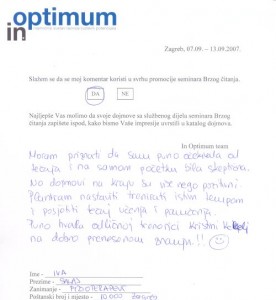 optimum
in
Zagreb, 07.09. – 13.09.2007.
Slažem se da se moj komentar koristi u svrhu promocije seminara Brzog čitanja.
DA NE
Najljepše Vas molimo da svoje dojmove sa službenog dijela seminara Brzog
čitanja zapišete ispod, kako bismo Vaše impresije uvrstili u katalog dojmova.
In Optimum team
Moram priznati da sam puno očekivala od
tečaja i na samom početku bila skeptična.
No dojmovi na kraju su više nego pozitivni.
Planiram nastaviti trenirati istim tempom
i posjetiti tečaj učenja i pamćenja.
Puno hvala odličnoj trenerici Kristini
na dobro prenesenom znanju!!
Ime - IVA
Prezime -
Zanimanje - FIZIOTERAPEUT
Poštanski broj i mjesto - 10000 Zagreb